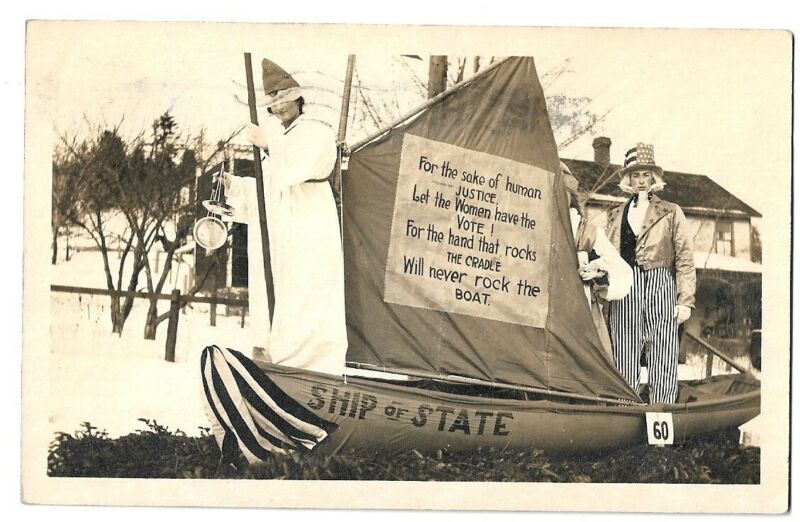 For the sake of human
JUSTICE,
Let the Women have the
VOTE!
For the hand that rocks
THE CRADLE
Will never rock the
BOAT.
SHIP OF STATE
60